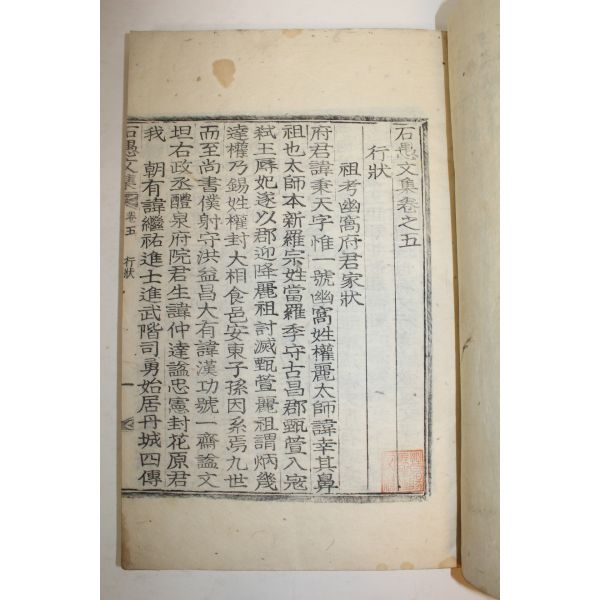 石愚文集卷之五
行狀
祖考幽窩府君家狀
府君諱秉天字惟一號幽窩姓權麗太師諱幸其鼻
祖也太師本新羅宗姓當羅季守古昌郡甄萱入寇
弑王辱妃遂以郡迎降麗祖討滅甄萱麗祖謂炳幾
達權乃錫姓權封大相食邑安東子孫因系焉九世
而至尚書僕射守洪益昌大有諱漢功號一齋謚文
坦右政丞醴泉府院君生諱仲達謚忠憲封花原君
我 朝有諱繼祐進士進武階司勇始居丹城四傳
石愚文集 卷五 行狀 一